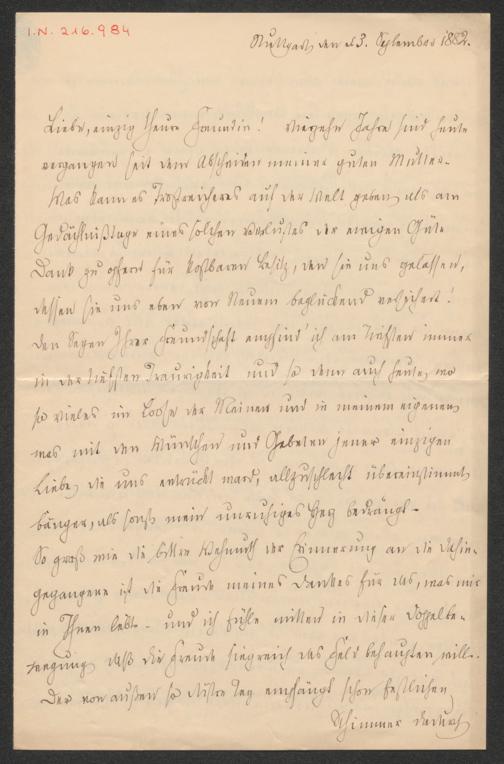 I.N. 216.984
Stuttgart den 23. September 1882.
Liebe, einzig theure Freundin! Vierzehn Jahre sind heute
vergangen seit dem Abscheiden meiner guten Mutter.
Was kann es Trostreicheres auf der Welt geben, als am
Gedächtnißtage eines solchen Verlustes der ewigen Güte
Dank zu opfern für kostbaren Besitz, den sie uns gelassen,
dessen sie uns eben von Neuem beglückend versichert!
Den Segen Ihrer Freundschaft empfind' ich am Tiefsten immer
in der tiefsten Traurigkeit und so denn auch heute, wo
so vieles im Loose der Meinen und in meinem eigenen,
was mit den Wünschen und Gebeten jener einzigen
Liebe, die uns entrückt ward, allzuschlecht übereinstimmt,
bänger, als sonst mein unruhiges Herz bedrängt.
So groß wie die bittre Wehmuth der Erinnerung an die Dahin-
gegangene ist die Freude meines Dankes für das, was mir
in Ihnen lebt – und ich fühle mitten in dieser Doppelbe-
wegung, daß die Freude siegreich das Feld behaupten will.
Der von außen so düstre Tag empfängt schon festlichen
Schimmer dadurch